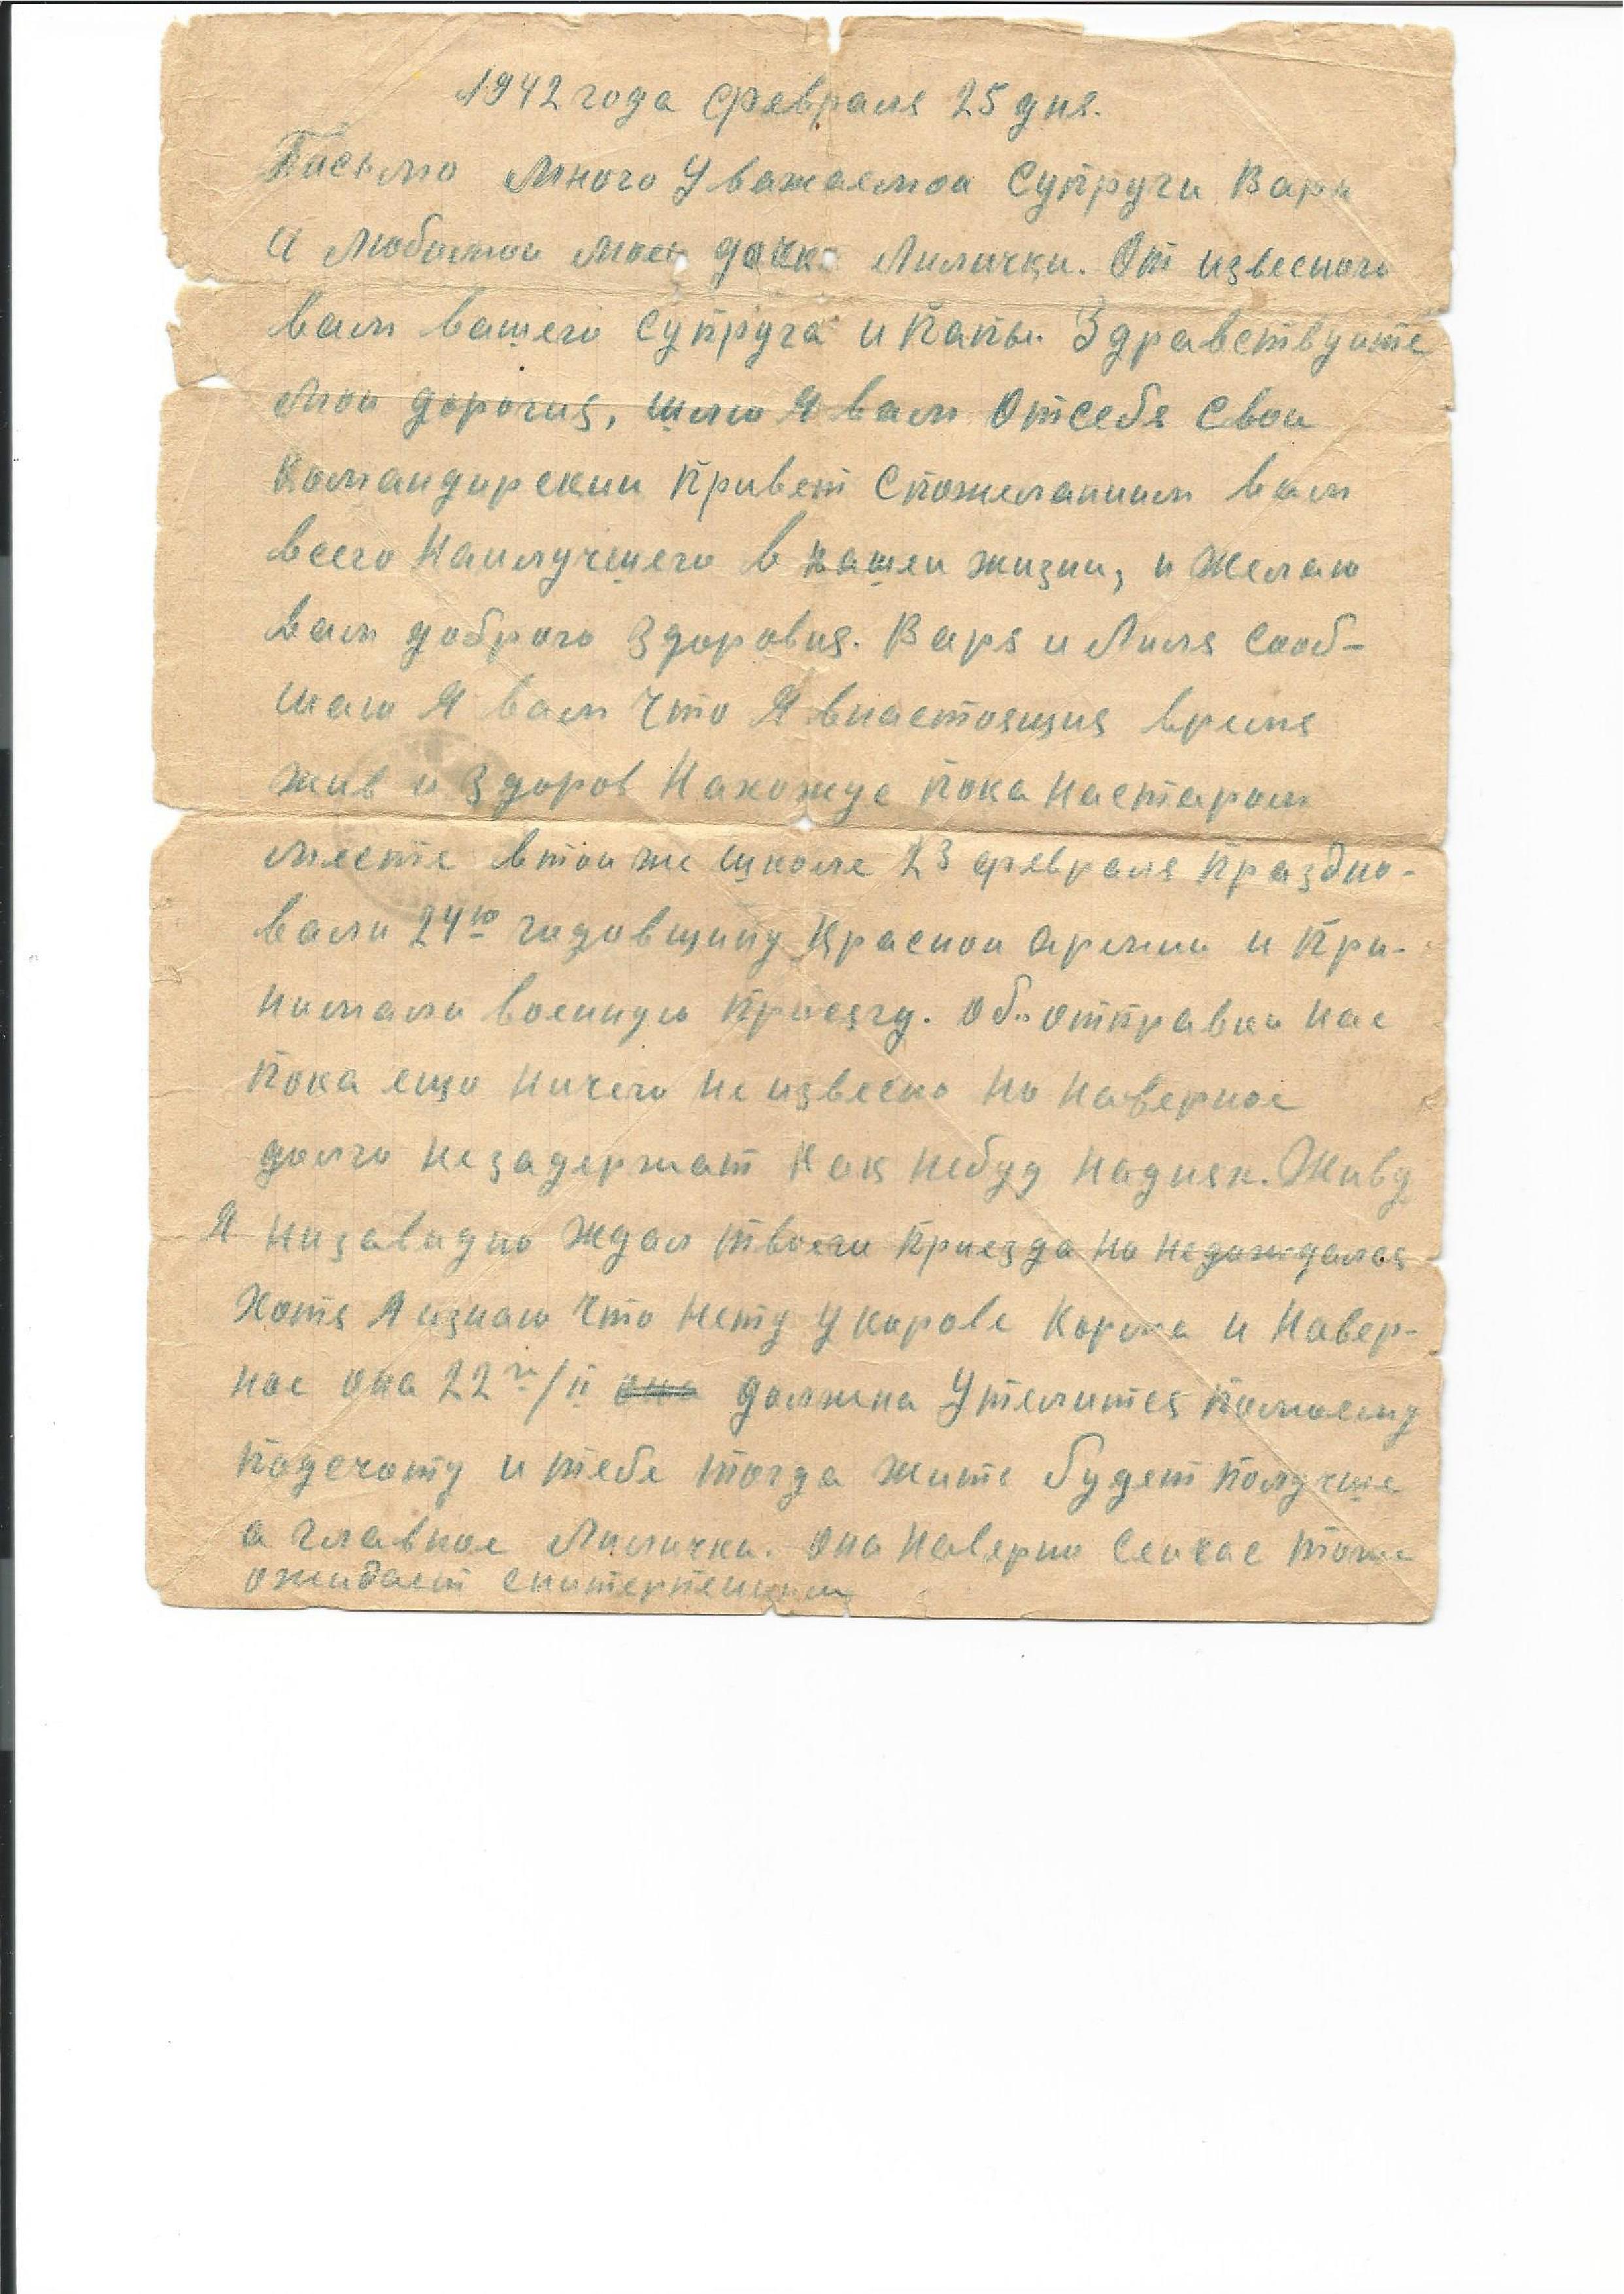 1942 года февраля 25 дня.
Письмо Много Уважаемои Супруги Вари
И Любимои моеи дочки Лилички. От извесного
вам вашего Супруга и Папы. Здравствуите
мои дорогия, шлю Я вам Отсебя Свои
Командирскии Привет Спожеланиям вам
всего Наилучшего в вашеи жизни, и Желаю
вам доброго Здоровия. Варя и Лиля Сооб-
шаю Я вам Что Я внастоящия время
жив и Здоров Нахожус Пока Настаром
месте втои же школе 23 февраля Праздно-
вали 24ю годовщину Краснои армии и При-
нимали военную Присягу. Об отправки нас
Пока ещо Ничего Не извесно Но Наверное
долго Незадержат Как Небуд Наднях. Живу
Я Низавидно Ждал твоего Приезда Но Недождался
Хотя Я изнаю Что Нету У корове Корма и Навер-
ное она 22го/II она должна Утелится Помоему
Подсчоту и тебе тогда жить будет Получше
а главное Лиличка. Она Наверно Сеичас тоже
ожидает Снитерпениим